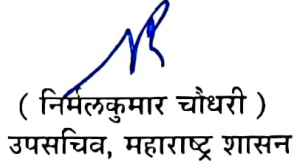 ( निर्मलकुमार चौधरी )
उपसचिव, महाराष्ट्र शासन